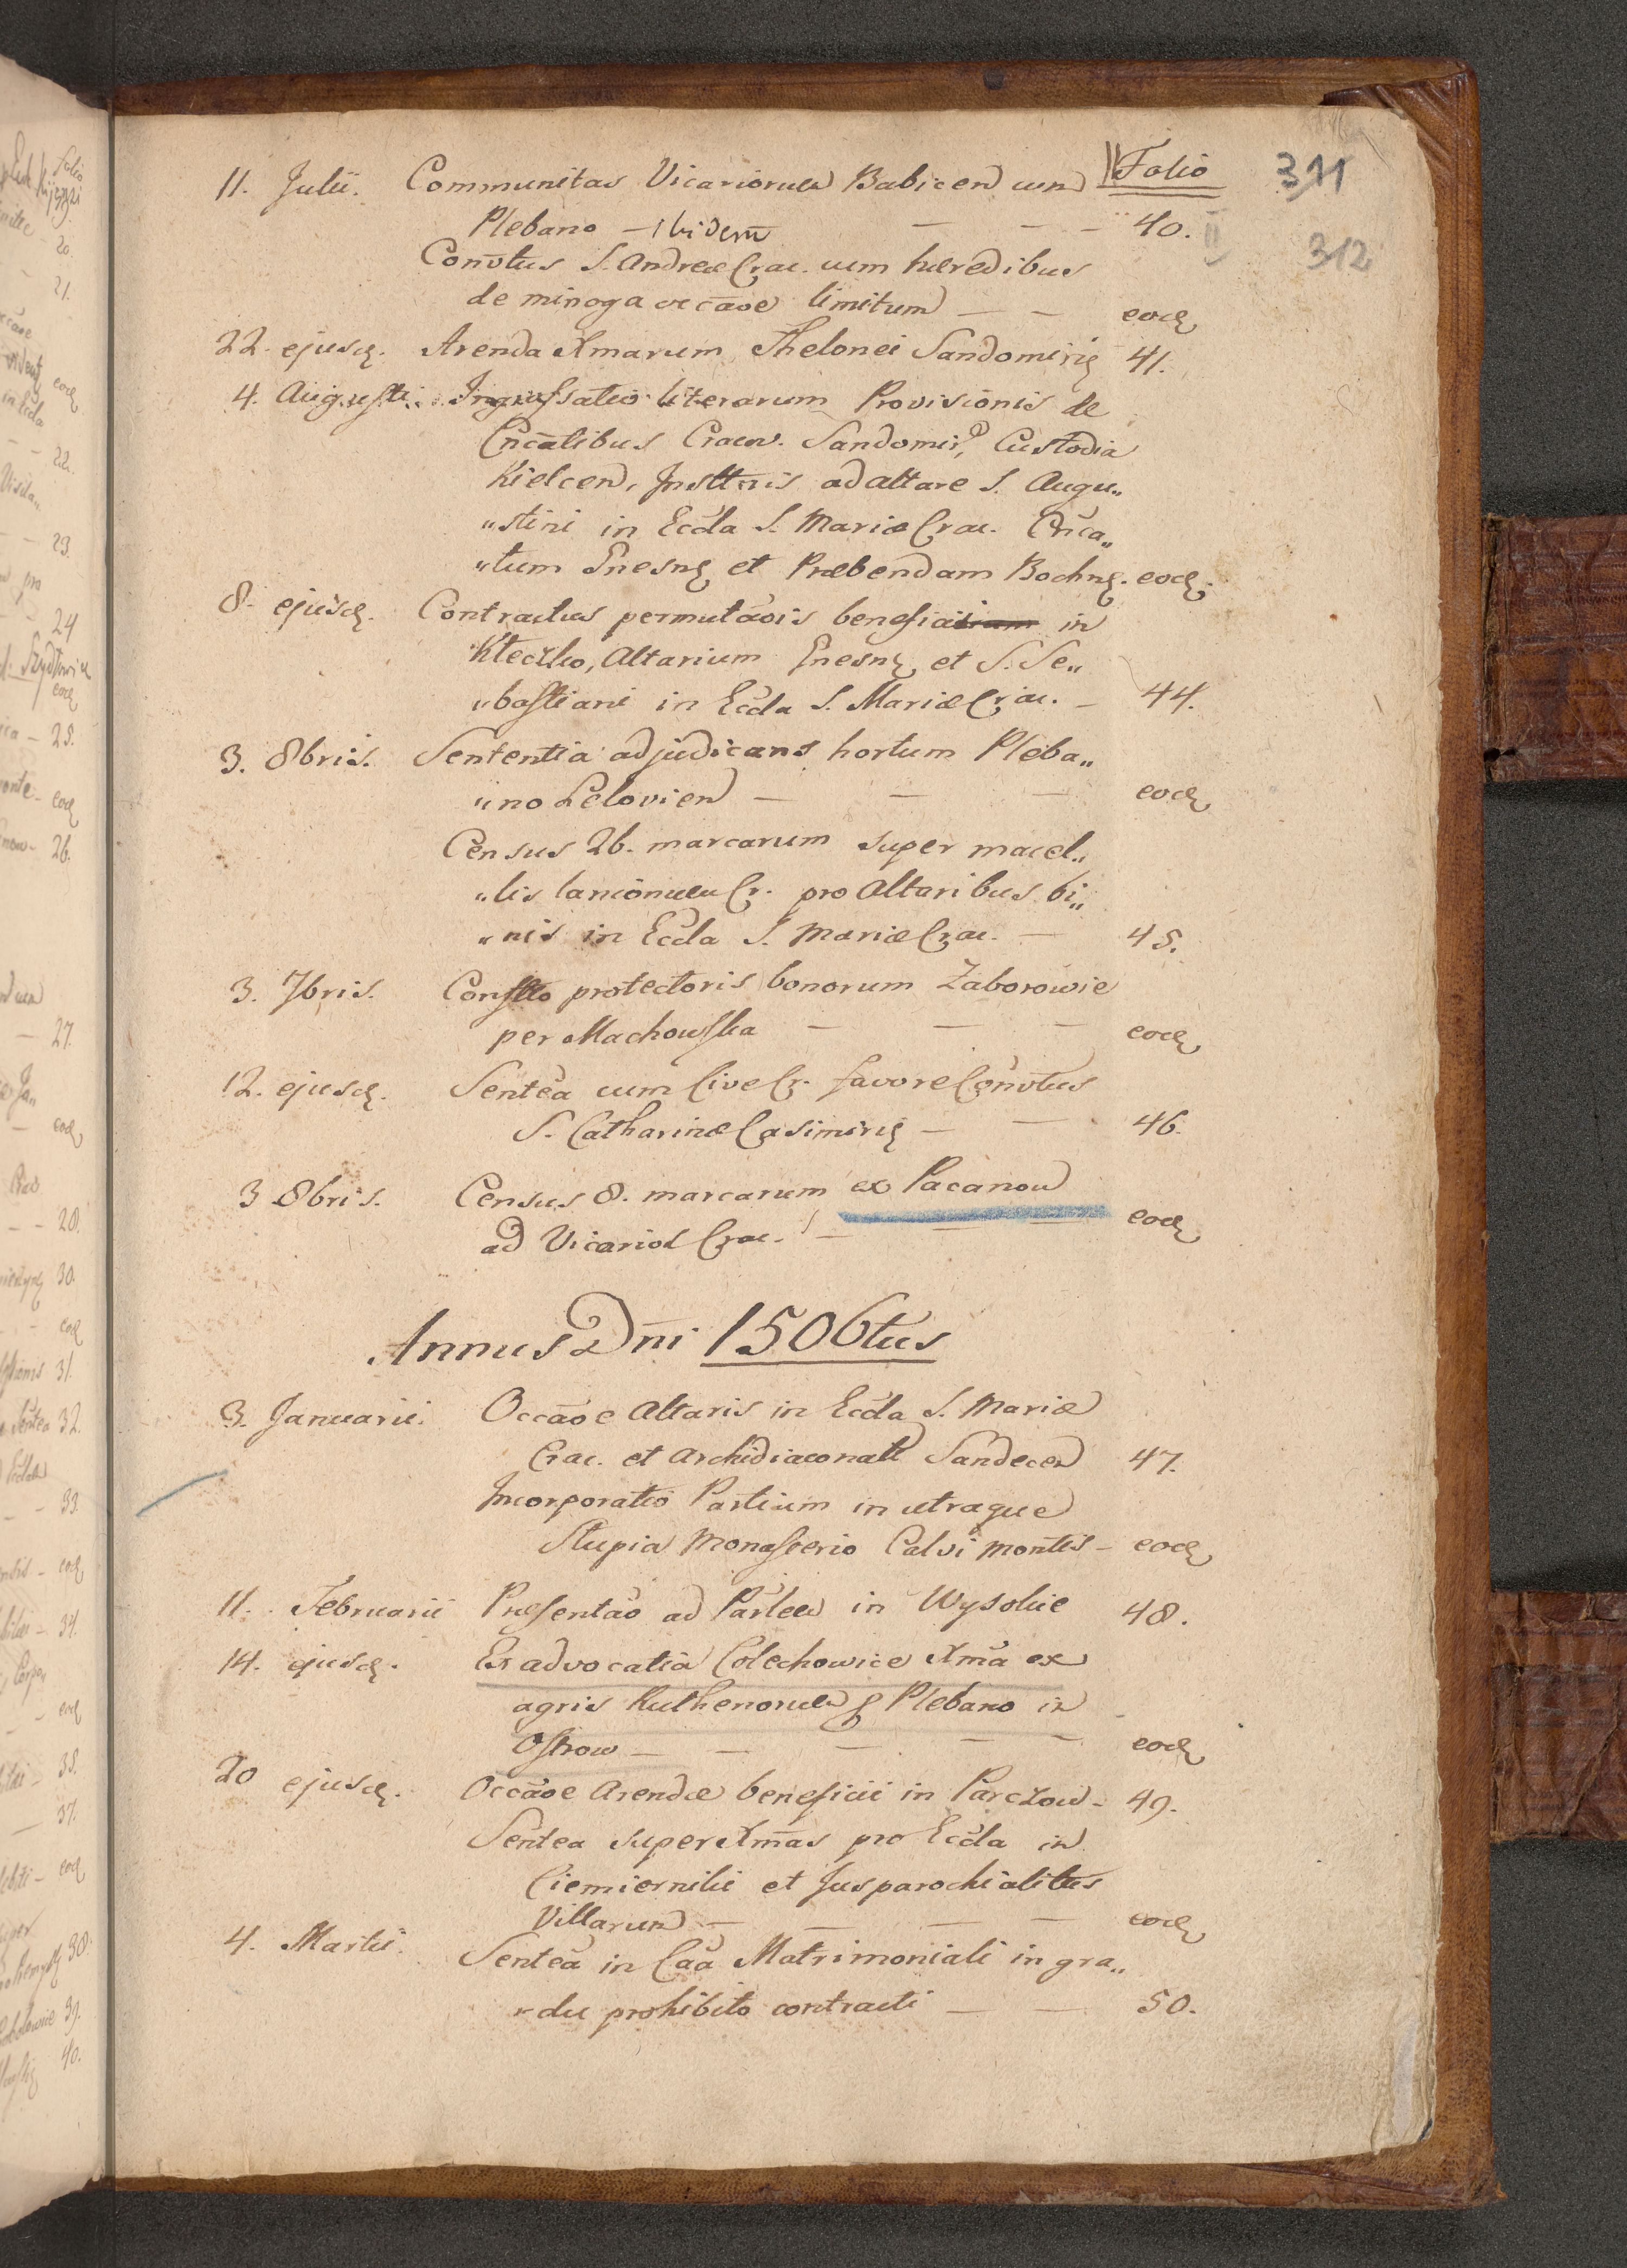 Folio
311
312
11. Julii. Communitas Vicariorum Babicen cum
Plebano – ibidem – – – 40.
Convtus S. Andreæ Crac. cum hæredibus
de minoga occãoe limitum – – eodę
22. ejusdę. Arenda Xmarum Thelonei Sandomirię 41.
4. Augusti. Ingrossatio literarum Provisionis de
Cncãtibus Cracov. Sandomir, Custodia
Kielcen, Insttnis ad altare S. Augu„
„stini in Eccla S. Mariæ Crac. Cnca„
„tum Gnesnę et Præbendam Bochnę. eodę.
8. ejusdę. Contractus permutãois beneficii in
Kłecżko, Altarium Gnesnę et S. Se„
„bastiani in Eccla S. Mariæ Crac. – 44.
3. 8bris. Sententia adjudicans hortum Pleba„
„no Lelovien – – – eodę
Census 26. marcarum super macel„
„lis lanionum Cr. pro Altaribus bi„
„nis in Eccla S. Mariæ Crac. – 45.
3. 7bris. Constto protectoris bonorum Zaborowie
per Machowska – – – eodę
12. ejusdę. Sentẽa cum Cive Cr. favore Convtus
S. Catharinæ Casimirię – – 46.
3 8bris. Census 8. marcarum ex Pacanow
ad Vicarios Crac. – – – eodę
Annus Dni 1506tus
3. Januarii. Occãoe Altaris in Eccla S. Mariæ
Crac. et Archidiaconatt Sandecen 47.
Incorporatio Partium in utraque
Slupia Monasterio Calvi montis – eodę
11. Februarii Præsentão ad Parlem in Wysokie 48.
14. ejusdę. Ex advocatia Colechowice Xma ex
agris Ruthenorum p Plebano in
Ostrow – – – – – eodę
20 ejusdę. Occãoe Arendæ beneficii in Parczow – 49.
Sentea super Xmas pro Eccla in
Ciemierniki et Jusparochialitus
Villarum – – – – eodę
4. Martii. Sentẽa in Cãa Matrimoniali in gra„
„du prohibito contracti – – 50.